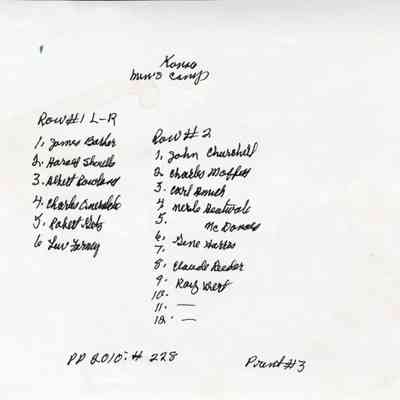 men's camp
Row #1 L-R
1. James Barker
2. Harold
3. Albert Rowland
4. Charles
5. Robert
6
Row #2
1. John Churchill
2. Charles Moffett
3. Carl Smith
4. Merle
5. McDonald
6. Gene Harris
7.
8. Claude Reeder
9. Ray West
10.
11. —
12. —
PP 2010: # 228
Print #3